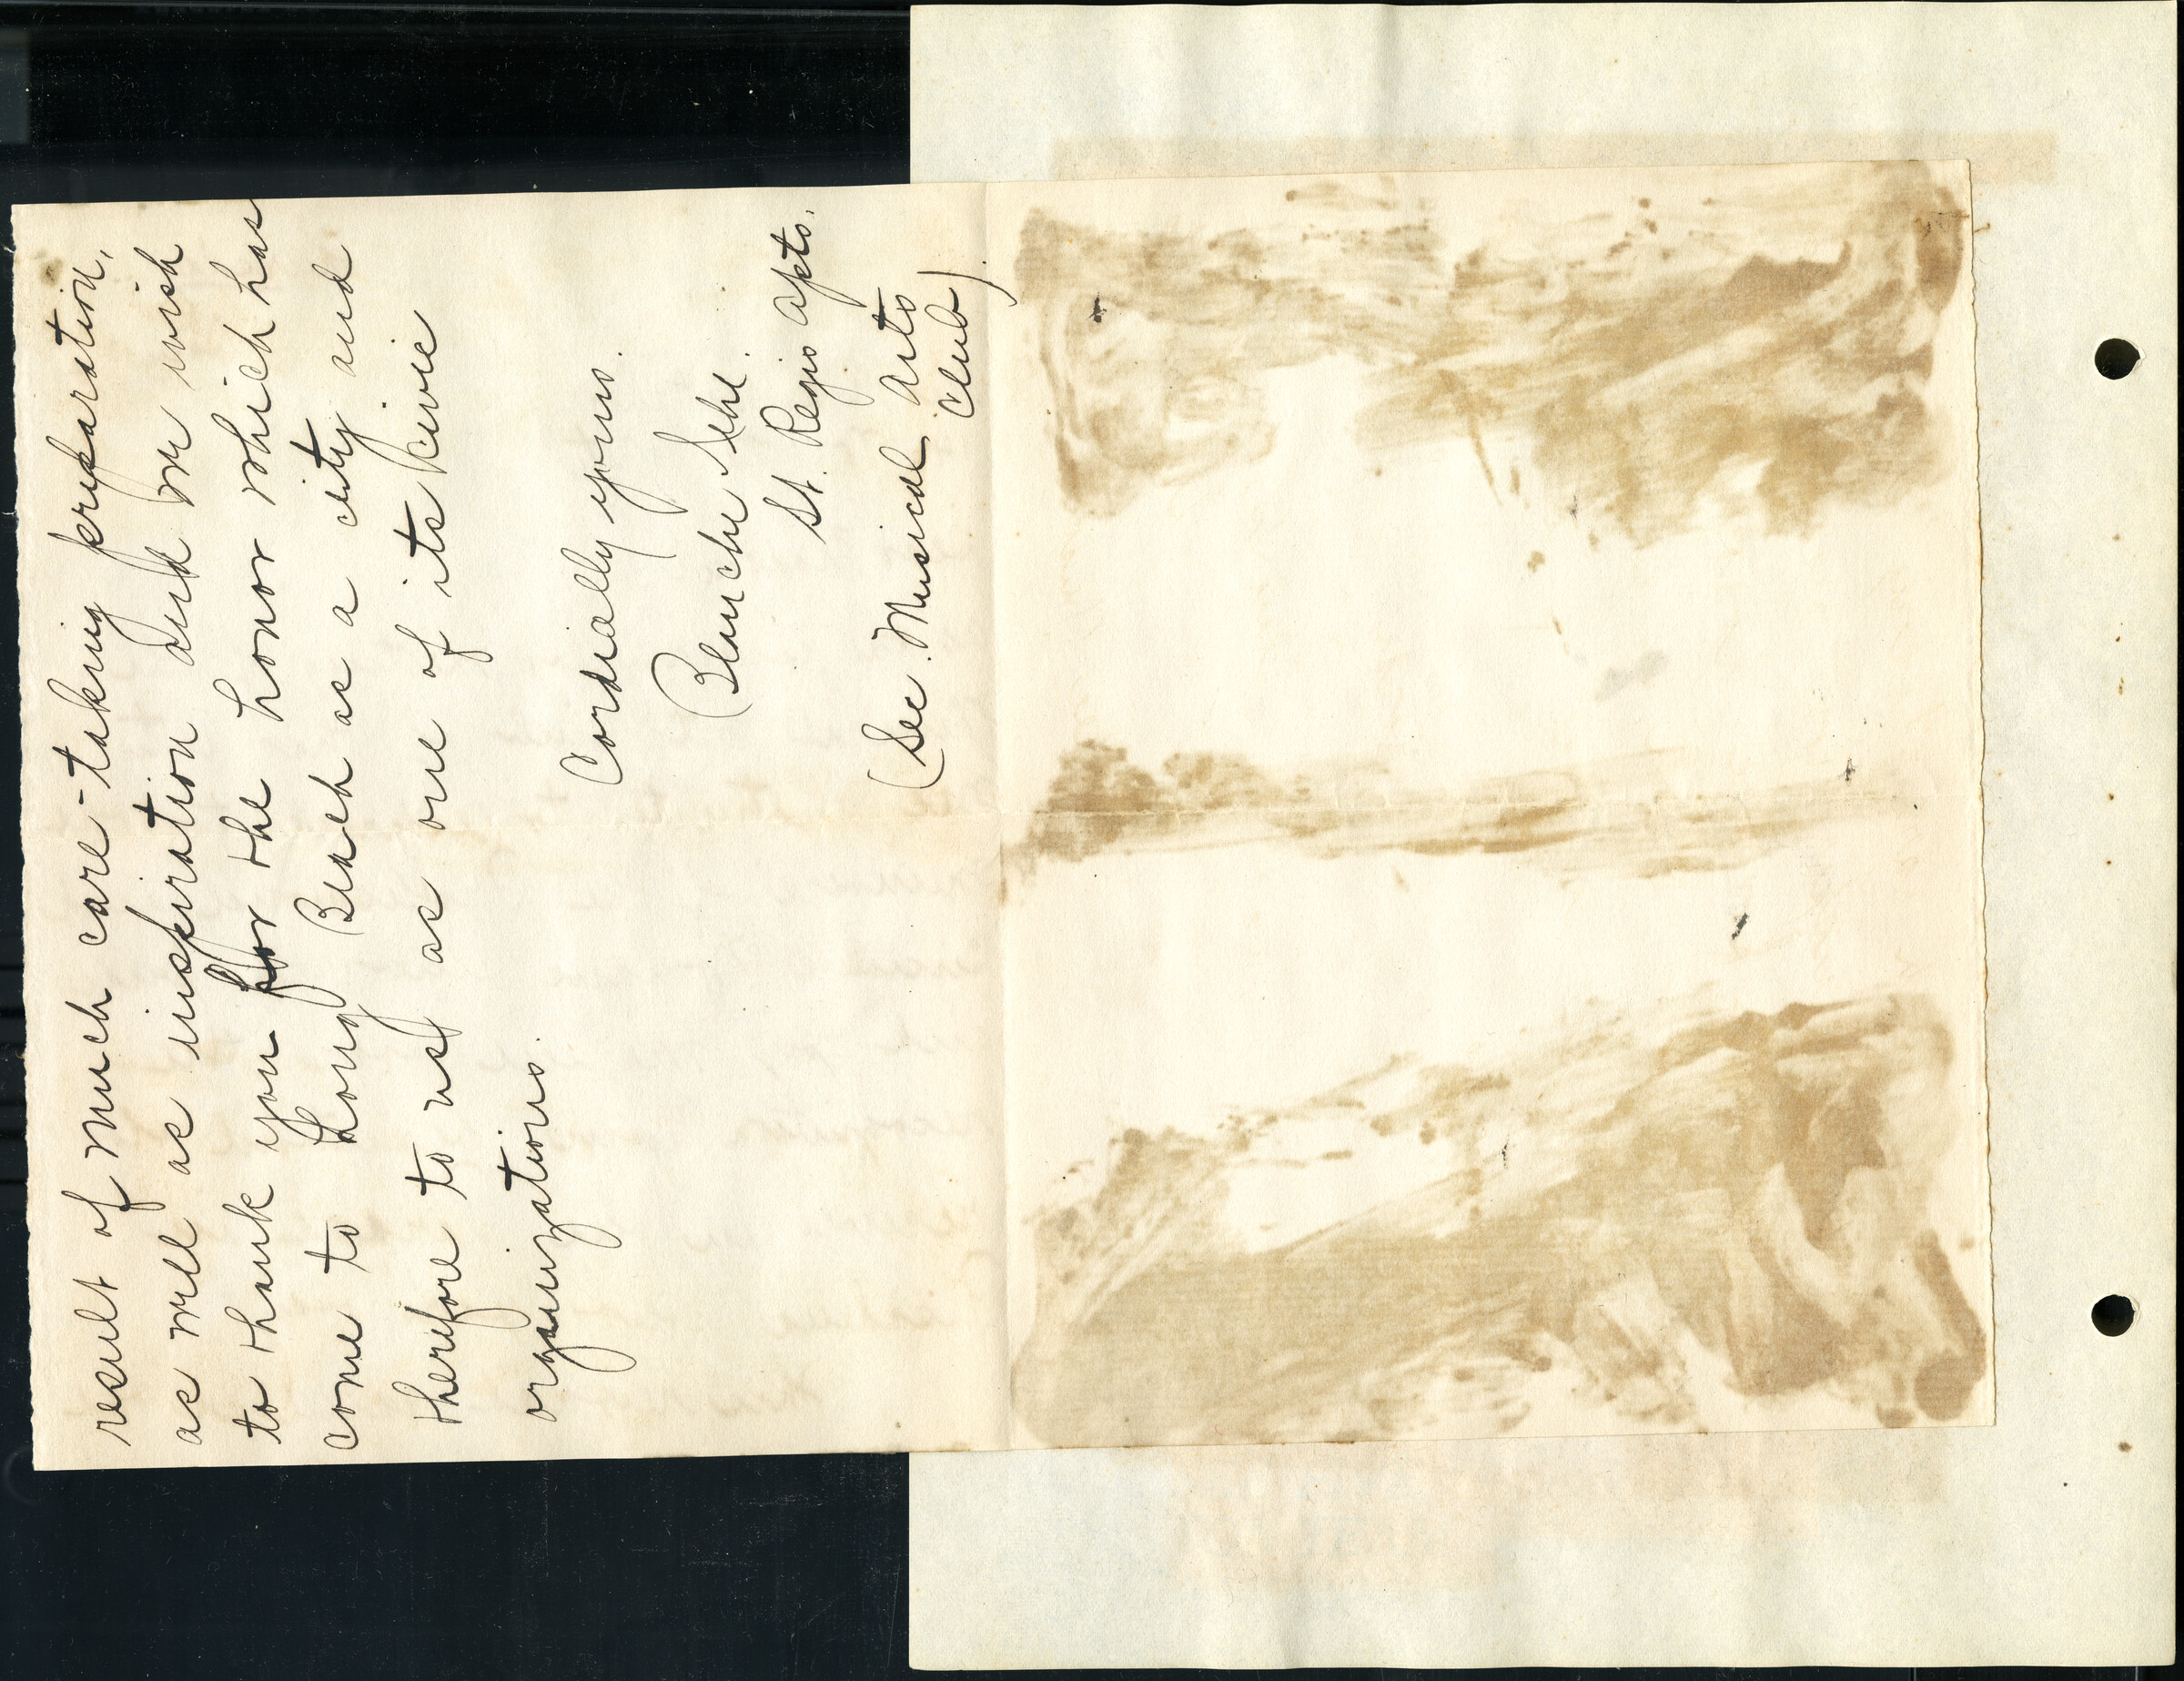 result of much care-taking preparation,
as well as inspiration and we wish
to thank you for the honor which has
come to Long Beach as a city and
therefore to us as one of its civic
organizations.
Cordially yours.
Blanche
St. Regis Apts.
(Sec. Musical Arts
Club)